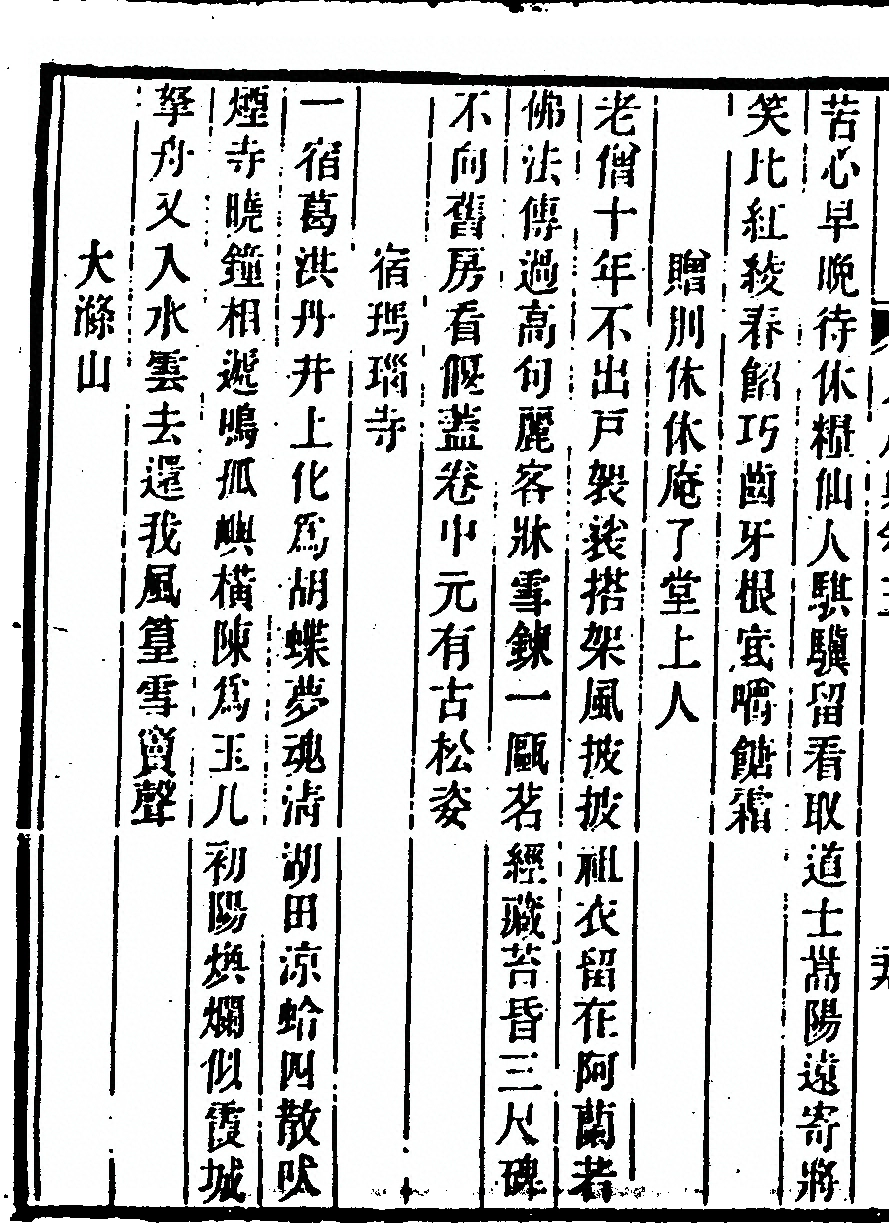 苦心早晚待休糧仙人騏驥留看取道士嵩陽遠寄將
笑比紅綾春餡巧齒牙根底嚼餹霜
贈別休休庵了堂上人
老僧十年不出戸袈裟搭架風披披祖衣留在阿蘭若
佛法傳過高句麗客牀雪鍊一甌茗經藏苔昏三尺碑
不向舊房看偃蓋卷中元有古松姿
宿瑪瑙寺
一宿葛洪丹井上化爲胡蝶夢魂淸湖田涼蛤四散吠
煙寺曉鐘相遞鳴孤嶼橫陳爲玉几初陽煥爛似霞城
拏舟又入水雲去還我風篁雪竇聲
大滌山